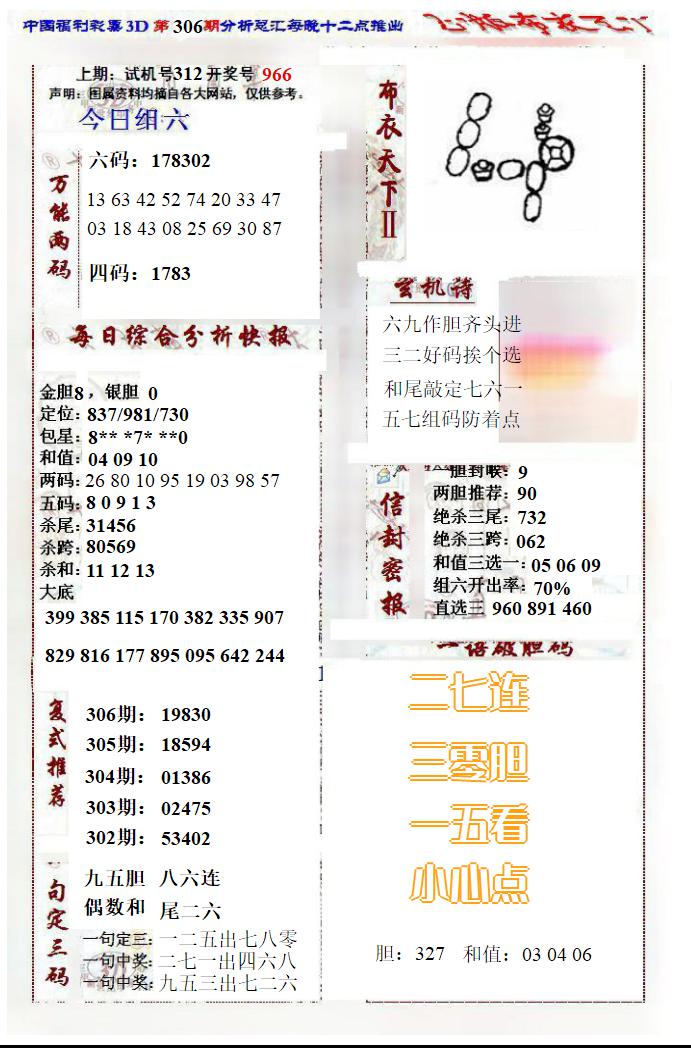 中国福利彩票3D 第306期分析总汇每晚十二点推出
上期：试机号312开奖号 966
声明：图属资料均摘自各大网站，仅供参考。
今日组六
万能两码
六码：178302
13 63 42 52 74 20 33 47
03 18 43 08 25 69 30 87
四码：1783
每日综合分析快报
金胆8，银胆 0
定位：837/981/730
包星：8** *7* **0
和值：04 09 10
两码：26 80 10 95 19 03 98 57
五码：8 0 9 1 3
杀尾：31456
杀跨：80569
杀和：11 12 13
大底
399 385 115 170 382 335 907
829 816 177 895 095 642 244
复式推荐
306期： 19830
305期： 18594
304期： 01386
303期： 02475
302期： 53402
一句定三码
九五胆 八六连
偶数和 尾二六
一句定三：一二五出七八零
一句中奖：二七一出四六八
一句中奖：九五三出七二六
布衣天下II
玄机诗
六九作胆齐头进
三二好码挨个选
和尾敲定七六一
五七组码防着点
信封密报
一胆封喉：9
两胆推荐：90
绝杀三尾：732
绝杀三跨：062
和值三选一：05 06 09
组六开出率：70%
直选三 960 891 460
语破胆码
二七连
三零胆
一五看
小心点
胆：327 和值：03 04 06